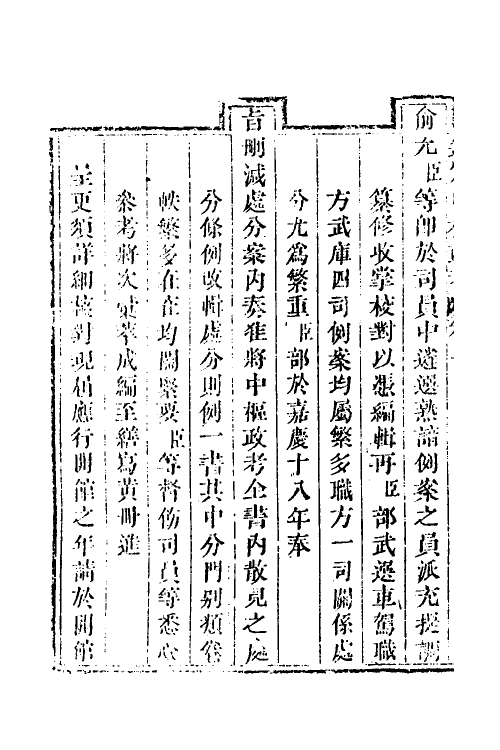 俞允臣等卽於司員中遴選熟諳例案之員派充提調
纂修收掌校對以憑編輯再臣部武選車駕職
方武庫四司例案均屬繁多職方一司關係處
分尤爲繁重臣部於嘉慶十八年奉
旨刪減處分案內奏准將中樞政考全書內散見之處
分條例改輯處分則例一書其中分門別類卷
帙繁多在在均關緊要臣等督飭司員等悉心
叅考將次彙萃成編至繕寫黃冊進
呈更須詳細核對現楷應行開館之年請於開館